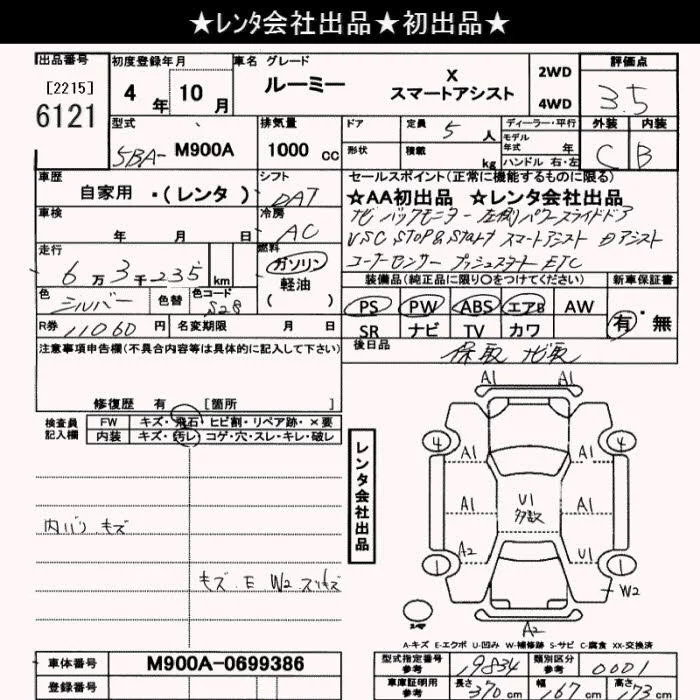 ★レンタ会社出品★初出品★
出品番号 初度登録年月 車名 グレード 評価点
[2215]
6121
4年 10月 ルーミー X スマートアシスト 2WD 4WD 3.5
型式 排気量 ドア 定員 5人 ディーラー・平行 外装 内装
5BA- M900A 1000cc 形状 積載 kg モデル年式 年 ハンドル 右・左 C B
車歴 シフト セールスポイント(正常に機能するものに限る)
自家用 ・(レンタ) DAT ★AA初出品 ★レンタ会社出品
車検 年 月 日 冷房 AC ナビ バックモニター 左側パワースライドドア
VSC STOP&START スマートアシスト
コーナーセンサー プッシュスタート ETC
走行 6万3千235km 燃料 ガソリン 軽油 ( )
装備品(純正品に限り○をつけてください) 新車保証書
色 シルバー 色替 色コード S28
PS PW ABS エアB AW 有・無
R券 11060円 名変期限 月 日 SR ナビ TV カワ
注意事項申告欄(不具合内容等は具体的に記入して下さい) 後日品 保取 ナビ取
修復歴 有 [箇所 ]
検査員記入欄 FW キズ・飛石・ヒビ割・リペア跡・×要
内装 キズ・汚レ・コゲ・穴・スレ・キレ・破レ
レンタ会社出品
A1 A1
4 4
A1 A1
A1 U1 多数 A1
A2 U1
1 1
W2
A2
内バリ キズ
キズ E W2 スリキズ
A-キズ E-エクボ U-凹み W-補修跡 S-サビ C-腐食 XX-交換済
車体番号 M900A-0699386 型式指定番号 参考 19834 類別区分 参考 0001
登録番号 車庫証明用 参考 長さ 370cm 幅 167cm 高さ 173cm